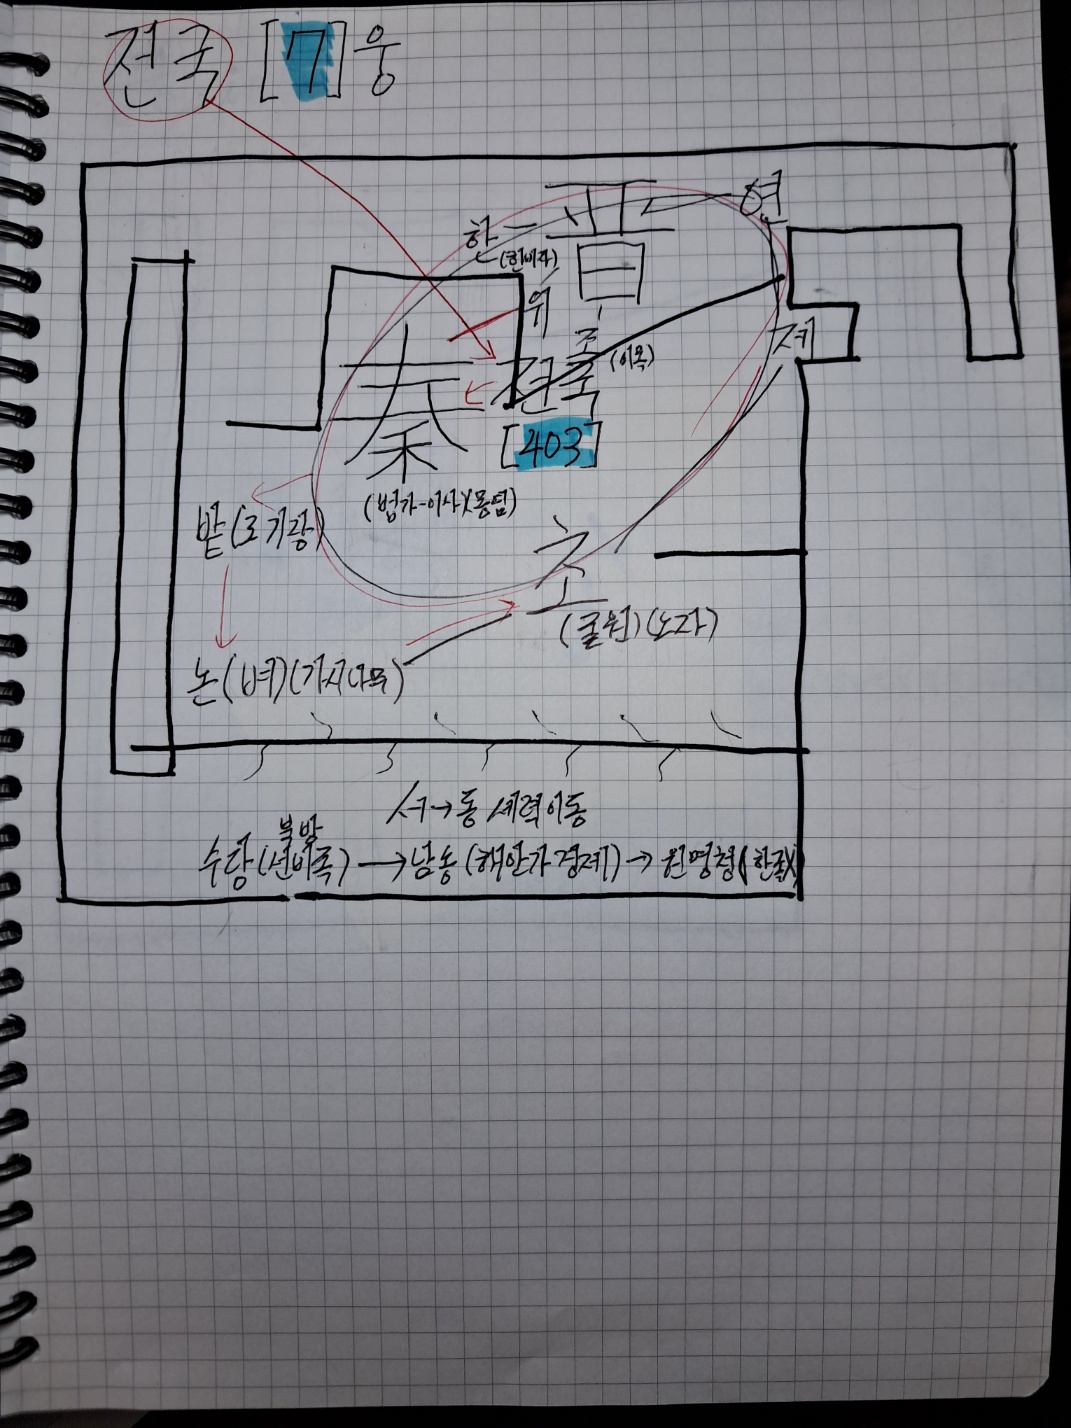 전국 [7]웅
연
한
晋
(한비자)
위
조
(이목)
제
秦
전국
[403]
(법가-이사)(몽염)
밭(조 기장)
초
(굴원)(노자)
논(벼)(가시나무)
서→동 세력이동
북방
수당(선비족)→남송(해안가 경제)→원명청(한족X)